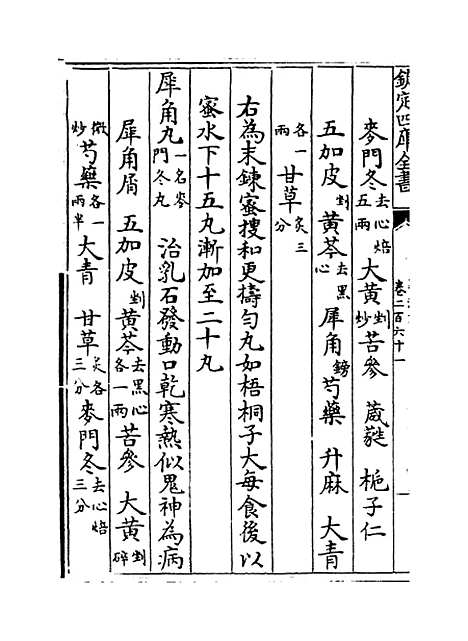 欽定四庫全書
卷二百六十一
麥門冬去心焙五兩 大黃剉炒 苦參 葳蕤 梔子仁
五加皮剉 黃芩去黑心 犀角鎊 芍藥 升麻 大青
各一兩 甘草炙三分
右為末鍊蜜搜和更檮勻丸如梧桐子大每食後以
蜜水下十五丸漸加至二十丸
犀角丸一名麥門冬丸 治乳石發動口乾寒熱似鬼神為病
犀角屑 五加皮剉 黃芩去黑心各一兩 苦參 大黃剉碎
微炒 芍藥各一兩半 大青 甘草炙各三分 麥門冬去心焙三分